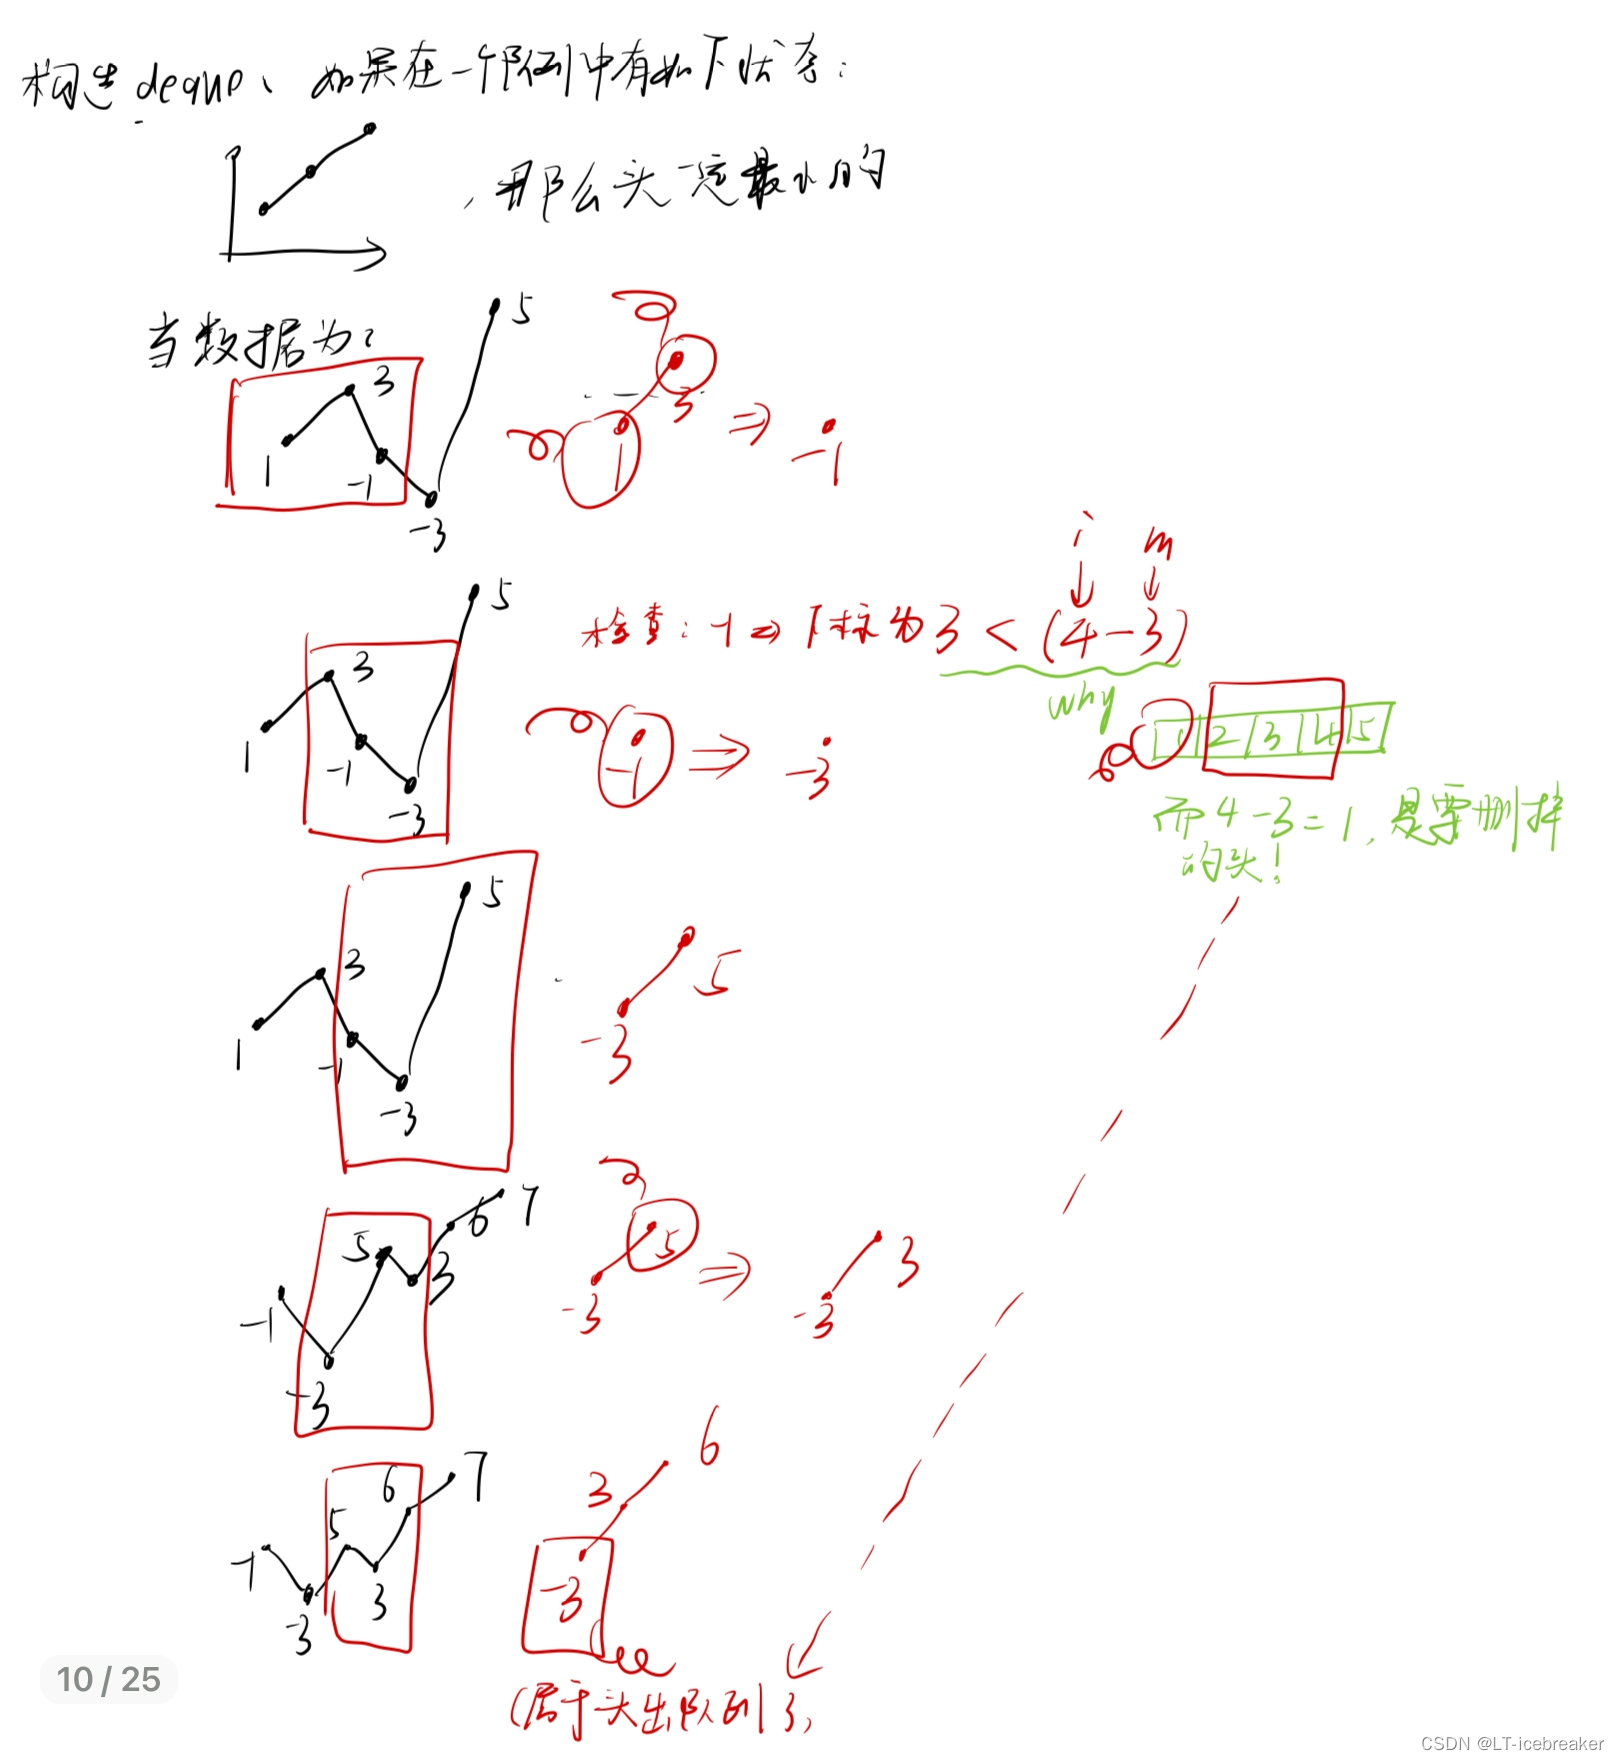 构造 deque、如果在一个队列中有如下状态：
，那么头一定最小的
当数据为：
5
3
1
-1
-3
3
1
⇒
-1
i
m
5
检查：-1 ⇒ 下标为 3 < (4-3)
why
3
1
-1
-3
-1
⇒
-3
1 2 3 4 5
而 4-3=1，是要删掉
的头！
5
3
1
-1
-3
5
-3
7
6
5
3
-1
-3
5
-3
⇒
3
-3
7
6
5
-1
3
-3
6
3
-3
(属于头出队列了)
10 / 25
CSDN @LT-icebreaker